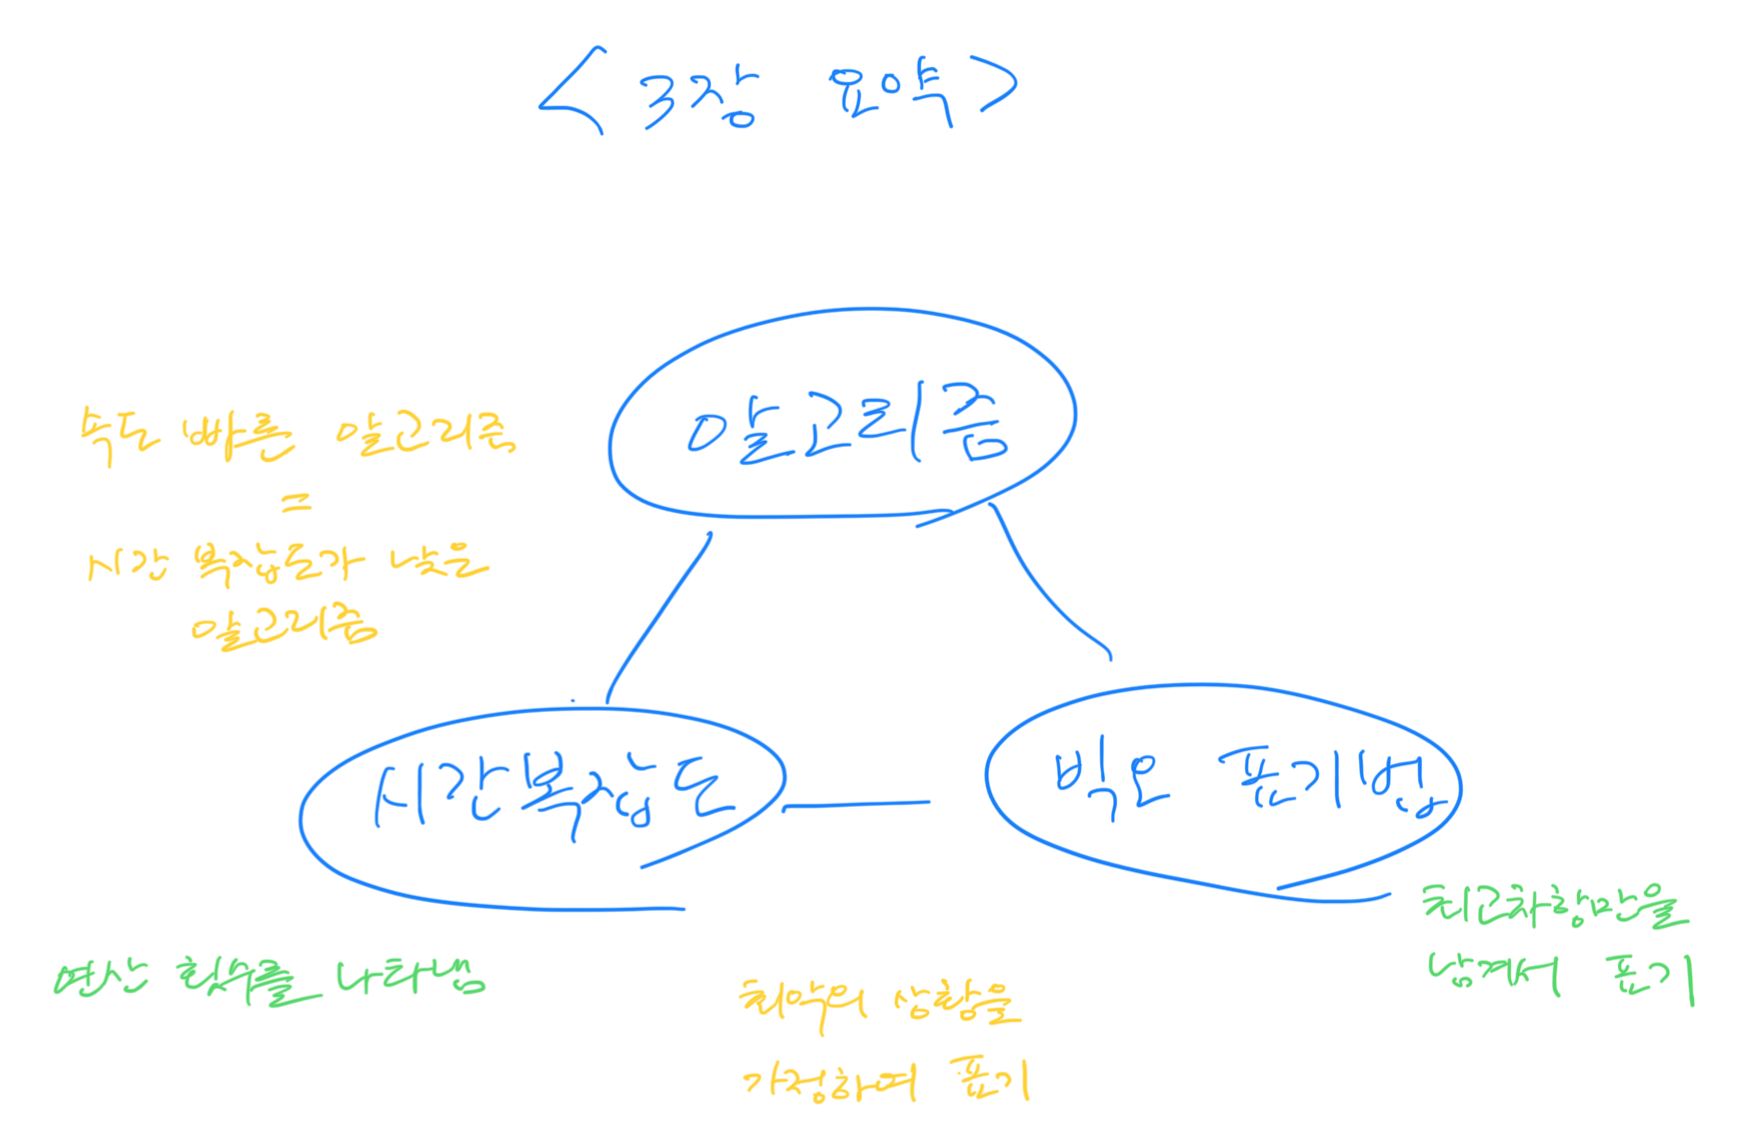 <3장 요약>
알고리즘
속도 빠른 알고리즘
=
시간 복잡도가 낮은
알고리즘
시간복잡도
빅오 표기법
연산 횟수를 나타냄
최악의 상황을
가정하여 표기
최고차항만을
남겨서 표기